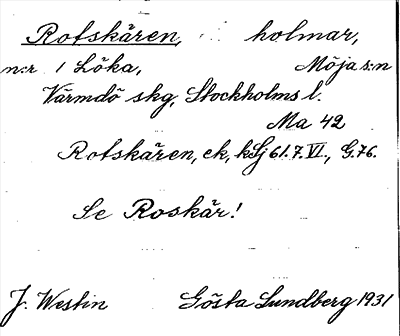 Rotskären, holmar,
n:r 1 Löka, Möja s:n
Värmdö skg, Stockholms l.
Ma 42
Rotskären, ek, kSj 61.7.VI., G.76.
Se Roskär!
J. Westin Gösta Lundberg 1931